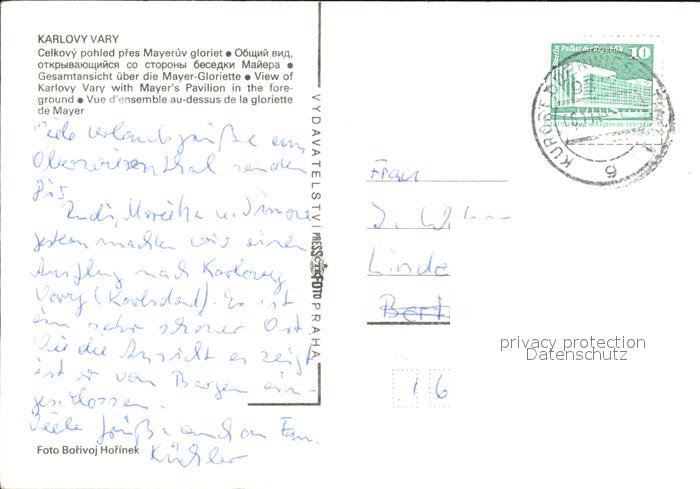 KARLOVY VARY
Celkový pohled přes Mayerův gloriet ● Общий вид,
открывающийся со стороны беседки Майера ●
Gesamtansicht über die Mayer-Gloriette ● View of
Karlovy Vary with Mayer's Pavilion in the fore-
ground ● Vue d'ensemble au-dessus de la gloriette
de Mayer
Viele Urlaubsgrüße aus
Oberwiesenthal senden
Rudi, u. Simone
gestern machten wir einen
Ausflug nach Karlovy
Vary (Karlsbad). Es ist
ein sehr schöner Ort
Wie die Ansicht es zeigt
ist er von Bergen ein-
geschlossen.
Viele Grüße auch an Fam.
Foto Bořivoj Hořínek
VYDAVATELSTVÍ PRESSFOTO PRAHA
Berlin Palast der Republik 10
KURORT OBERWIESENTHAL
9
Frau
Linde
privacy protection
Datenschutz
16